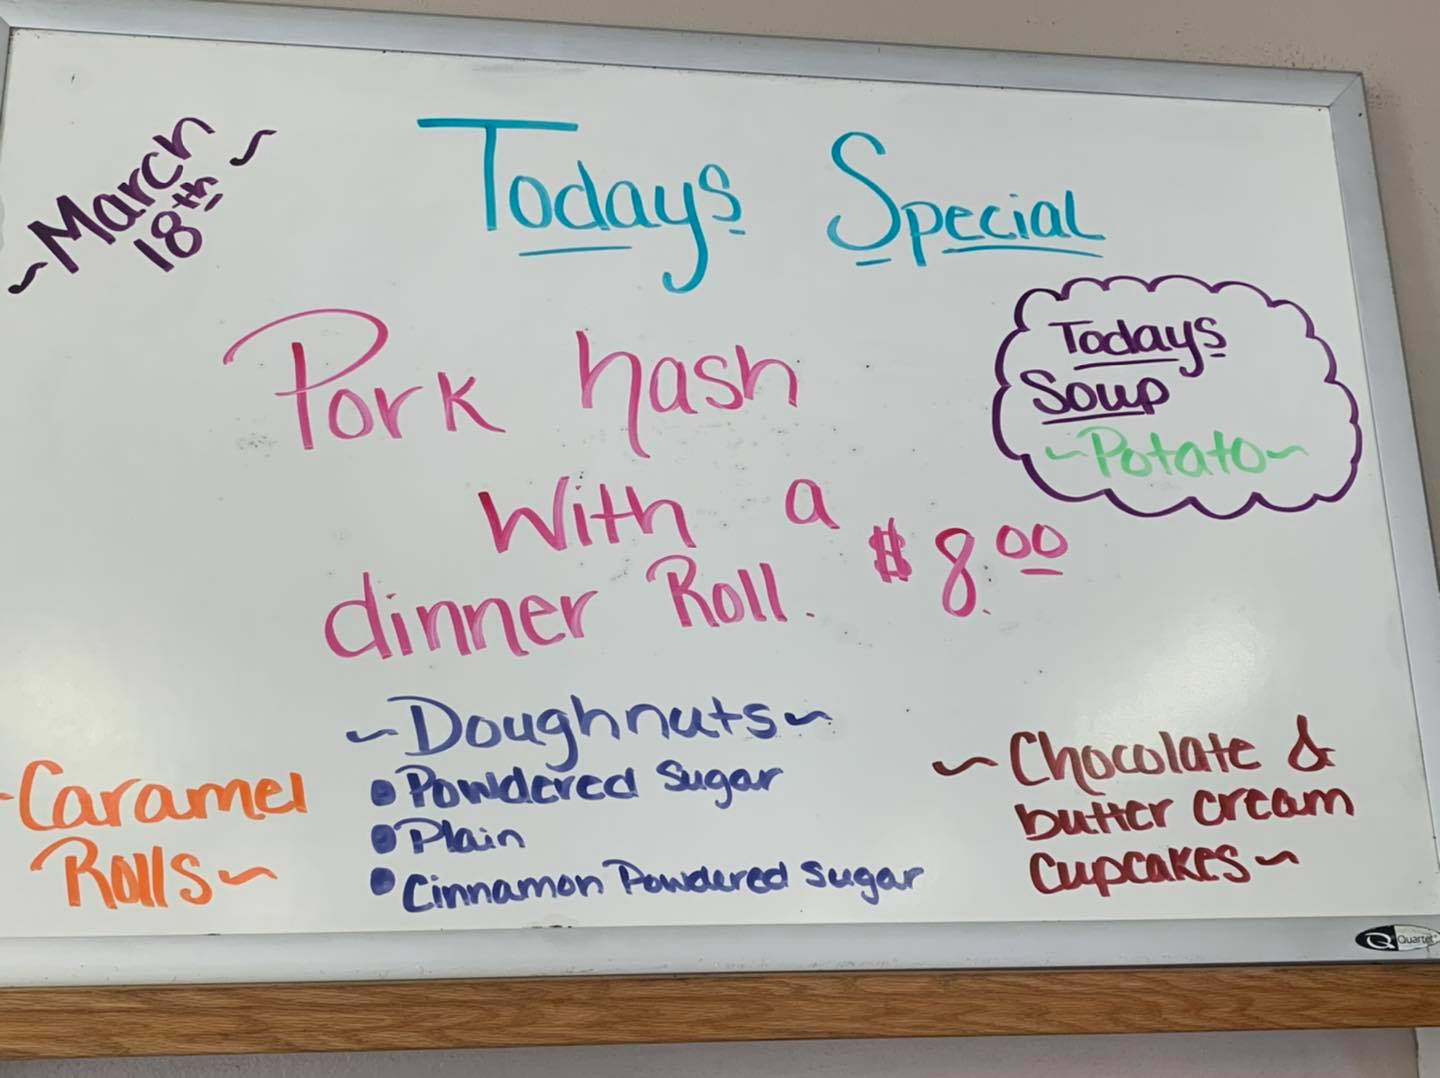 ~March
18th~
Todays Special
Pork hash
With a
dinner Roll. $8.00
Todays
Soup
~Potato~
-Caramel
Rolls~
~Doughnuts~
• Powdered Sugar
• Plain
• Cinnamon Powdered Sugar
~Chocolate &
butter cream
cupcakes~
Quartet